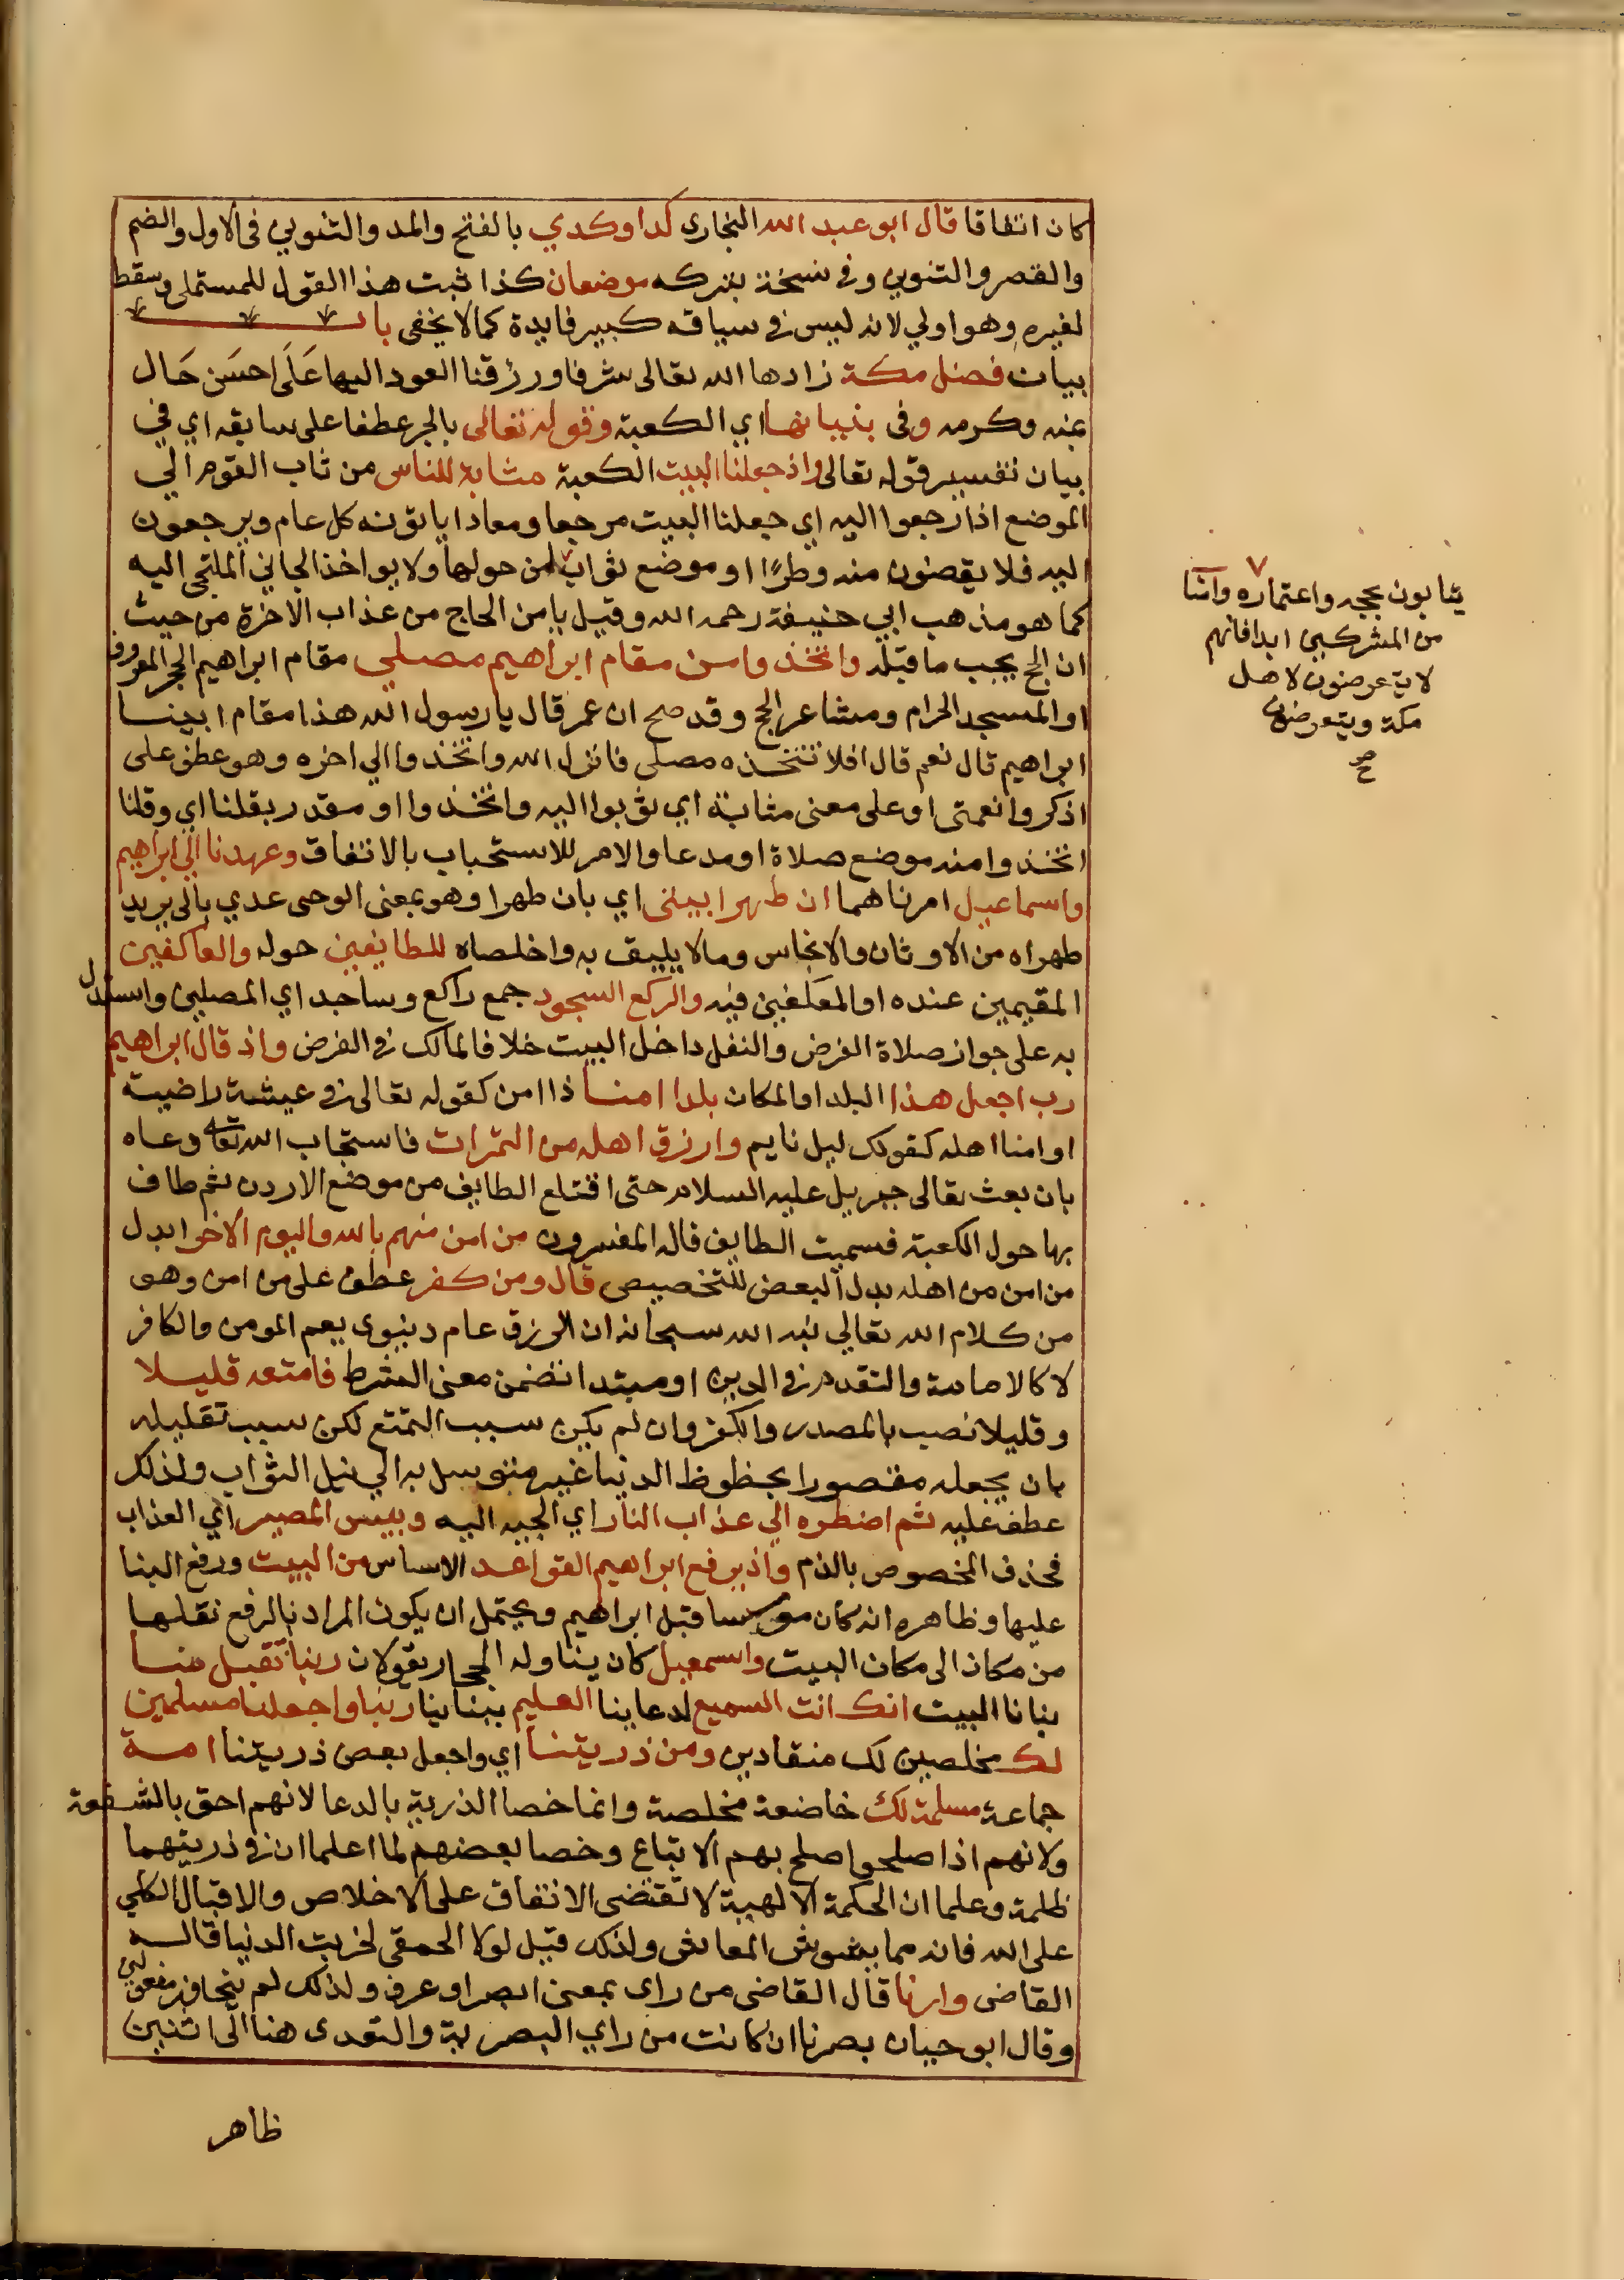 كان اتفاقا قال ابو عبد الله البخاري كدا وكدي بالفتح والمد والتنوين في الاول والضم
والقصر والتنوين وفي نسخة بتركه موضعان كذا ثبت هذا القول للمستملي وسقط
لغيره وهو اولي لانه ليس في سياقه كبير فايدة كما لا يخفى باب
بيان فضل مكة زادها الله تعالى شرفا ورزقنا العود اليها عَلَى احسَن حَال
بمنه وكرمه وفى بنيانها اي الكعبة وقوله تعالى بالجر عطفا على سابقه اي في
بيان تفسير قوله تعالى واذ جعلنا البيت الكعبة مثابة للناس من ثاب القوم الي
الموضع اذا رجعوا اليه اي جعلنا البيت مرجعا ومعادا ياتونه كل عام ويرجعون
اليه فلا يقضون منه وطرًا او موضع ثواب من حولها ولا يواخذ الجاني الملتجي اليه
كما هو مذهب ابي حنيفة رحمه الله وقيل يامن الحاج من عذاب الاخرة من حيث
ان الحج يجب ما قبله واتخذوا من مقام ابراهيم مصلي مقام ابراهيم الحجر المعروف
او المسجد الحرام ومشاعر الحج وقد صح ان عمر قال يا رسول الله هذا مقام ابينا
ابراهيم قال نعم قال افلا نتخذه مصلى فانزل الله واتخذوا الي اخره وهو عطف على
اذكروا نعمتى او على معنى مثابة اي ثوبوا اليه واتخذوا او مقدر بقلنا اي وقلنا
اتخذوا منه موضع صلاة او مدعا والامر للاستحباب بالاتفاق وعهدنا الي ابراهيم
واسماعيل امرناهما ان طهرا بيتى اي بان طهرا وهو بمعنى الوحى عدي بالى يريد
طهراه من الاوثان والانجاس وما لا يليق به واخلصاه للطايفين حوله والعاكفين
المقيمين عنده او المعتكفين فيه والركع السجود جمع راكع وساجد اي المصلين واستدل
به على جواز صلاة الفرض والنفل داخل البيت خلافا لمالك في الفرض واذ قال ابراهيم
رب اجعل هذا البلد او المكان بلدا امنا ذا امن كقوله تعالى في عيشة راضية
او امنا اهله كقولك ليل نايم وارزق اهله من الثمرات فاستجاب الله تعالى دعاه
بان بعث تعالى جبريل عليه السلام حتى اقتلع الطايف من موضع الاردن ثم طاف
بها حول الكعبة فسميت الطايف قاله المفسرون من امن منهم بالله واليوم الاخر ابدل
من امن من اهله بدل البعض للتخصيص قال ومن كفر عطف على من امن وهو
من كلام الله تعالي نبه الله سبحانه ان الرزق عام دنيوى يعم المومن والكافر
لا كالامامة والتقدم في الدين او مبتدا تضمن معنى الشرط فامتعه قليلا
وقليلا نصب بالمصدر والكفر وان لم يكن سبب التمتع لكن سبب تقليله
بان يجعله مقصورا بحظوظ الدنيا غير متوسل به الي نيل الثواب ولذلك
عطف عليه ثم اضطره الي عذاب النار اي الجيه اليه وبيس المصير اي العذاب
فحذف المخصوص بالذم واذ يرفع ابراهيم القواعد الاساس من البيت ورفع البنا
عليها وظاهره انه كان موسسا قبل ابراهيم ويحتمل ان يكون المراد بالرفع نقلها
من مكان الى مكان البيت واسمعيل كان يناوله الحجار يقولان ربنا تقبل منا
بنانا البيت انك انت السميع لدعاينا العليم ببناينا ربنا واجعلنا مسلمين
لك مخلصين لك منقادين ومن ذريتنا اي واجعل بعض ذريتنا امة
جماعة مسلمة لك خاضعة مخلصة وانما خصا الذرية بالدعا لانهم احق بالشفقة
ولانهم اذا صلحوا صلح بهم الاتباع وخصا بعضهم لما اعلما ان في ذريتهما
ظلمة وعلما ان الحكمة الالهية لا تقتضى الاتفاق على الاخلاص والاقبال الكلي
على الله فانه مما يشوش المعاش ولذلك قيل لولا الحمقى لخربت الدنيا قاله
القاضى وارنا قال القاضى من راى بمعنى ابصر او عرف ولذلك لم يتجاوز مفعولين
وقال ابو حيان بصرنا ان كانت من راي البصرية والتعدى هنا الى اثنين
ظاهر
يثابون بحجه واعتماره وآمنا
من المشركين ابدا فانهم
لا يتعرضون لاهل
مكة ويتعرضون
صح